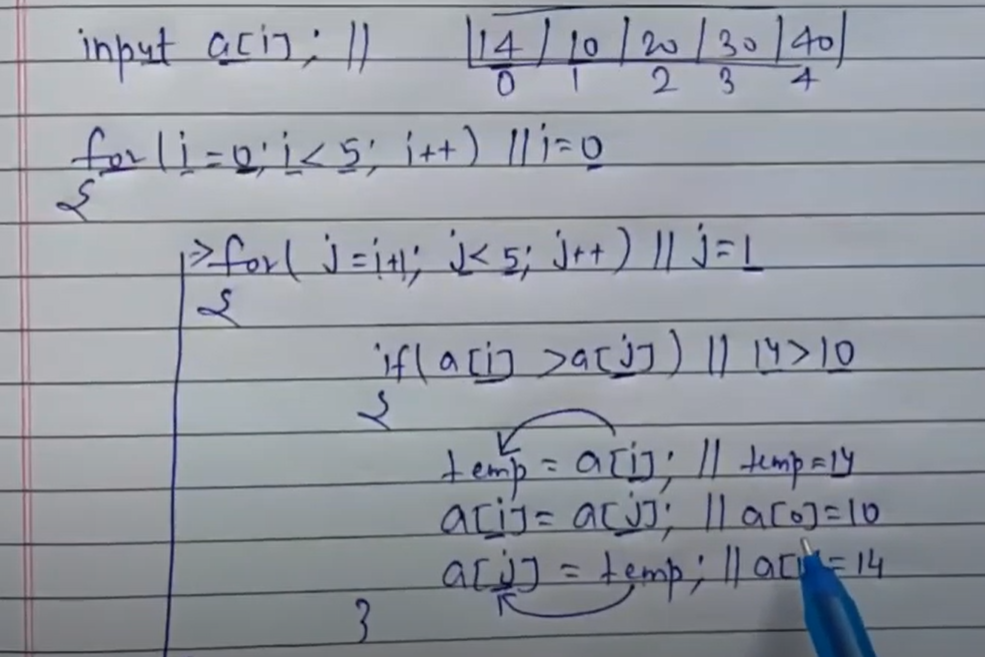 input a[i]; // |14|10|20|30|40|
0 1 2 3 4
for(i=0; i<5; i++) // i=0
{
=>for( j=i+1; j<5; j++) // j=1
{
if( a[i] >a[j]) // 14>10
{
temp = a[i]; // temp=14
a[i]= a[j]; // a[0]=10
a[j] = temp; // =14
}